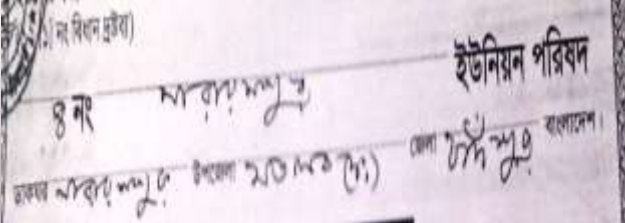 নং বিধান দ্রষ্টব্য)
ইউনিয়ন পরিষদ
৪ নং নারায়নপুর
ডাকঘর নারায়নপুর উপজেলা মতলব (দঃ) জেলা চাঁদপুর বাংলাদেশ।